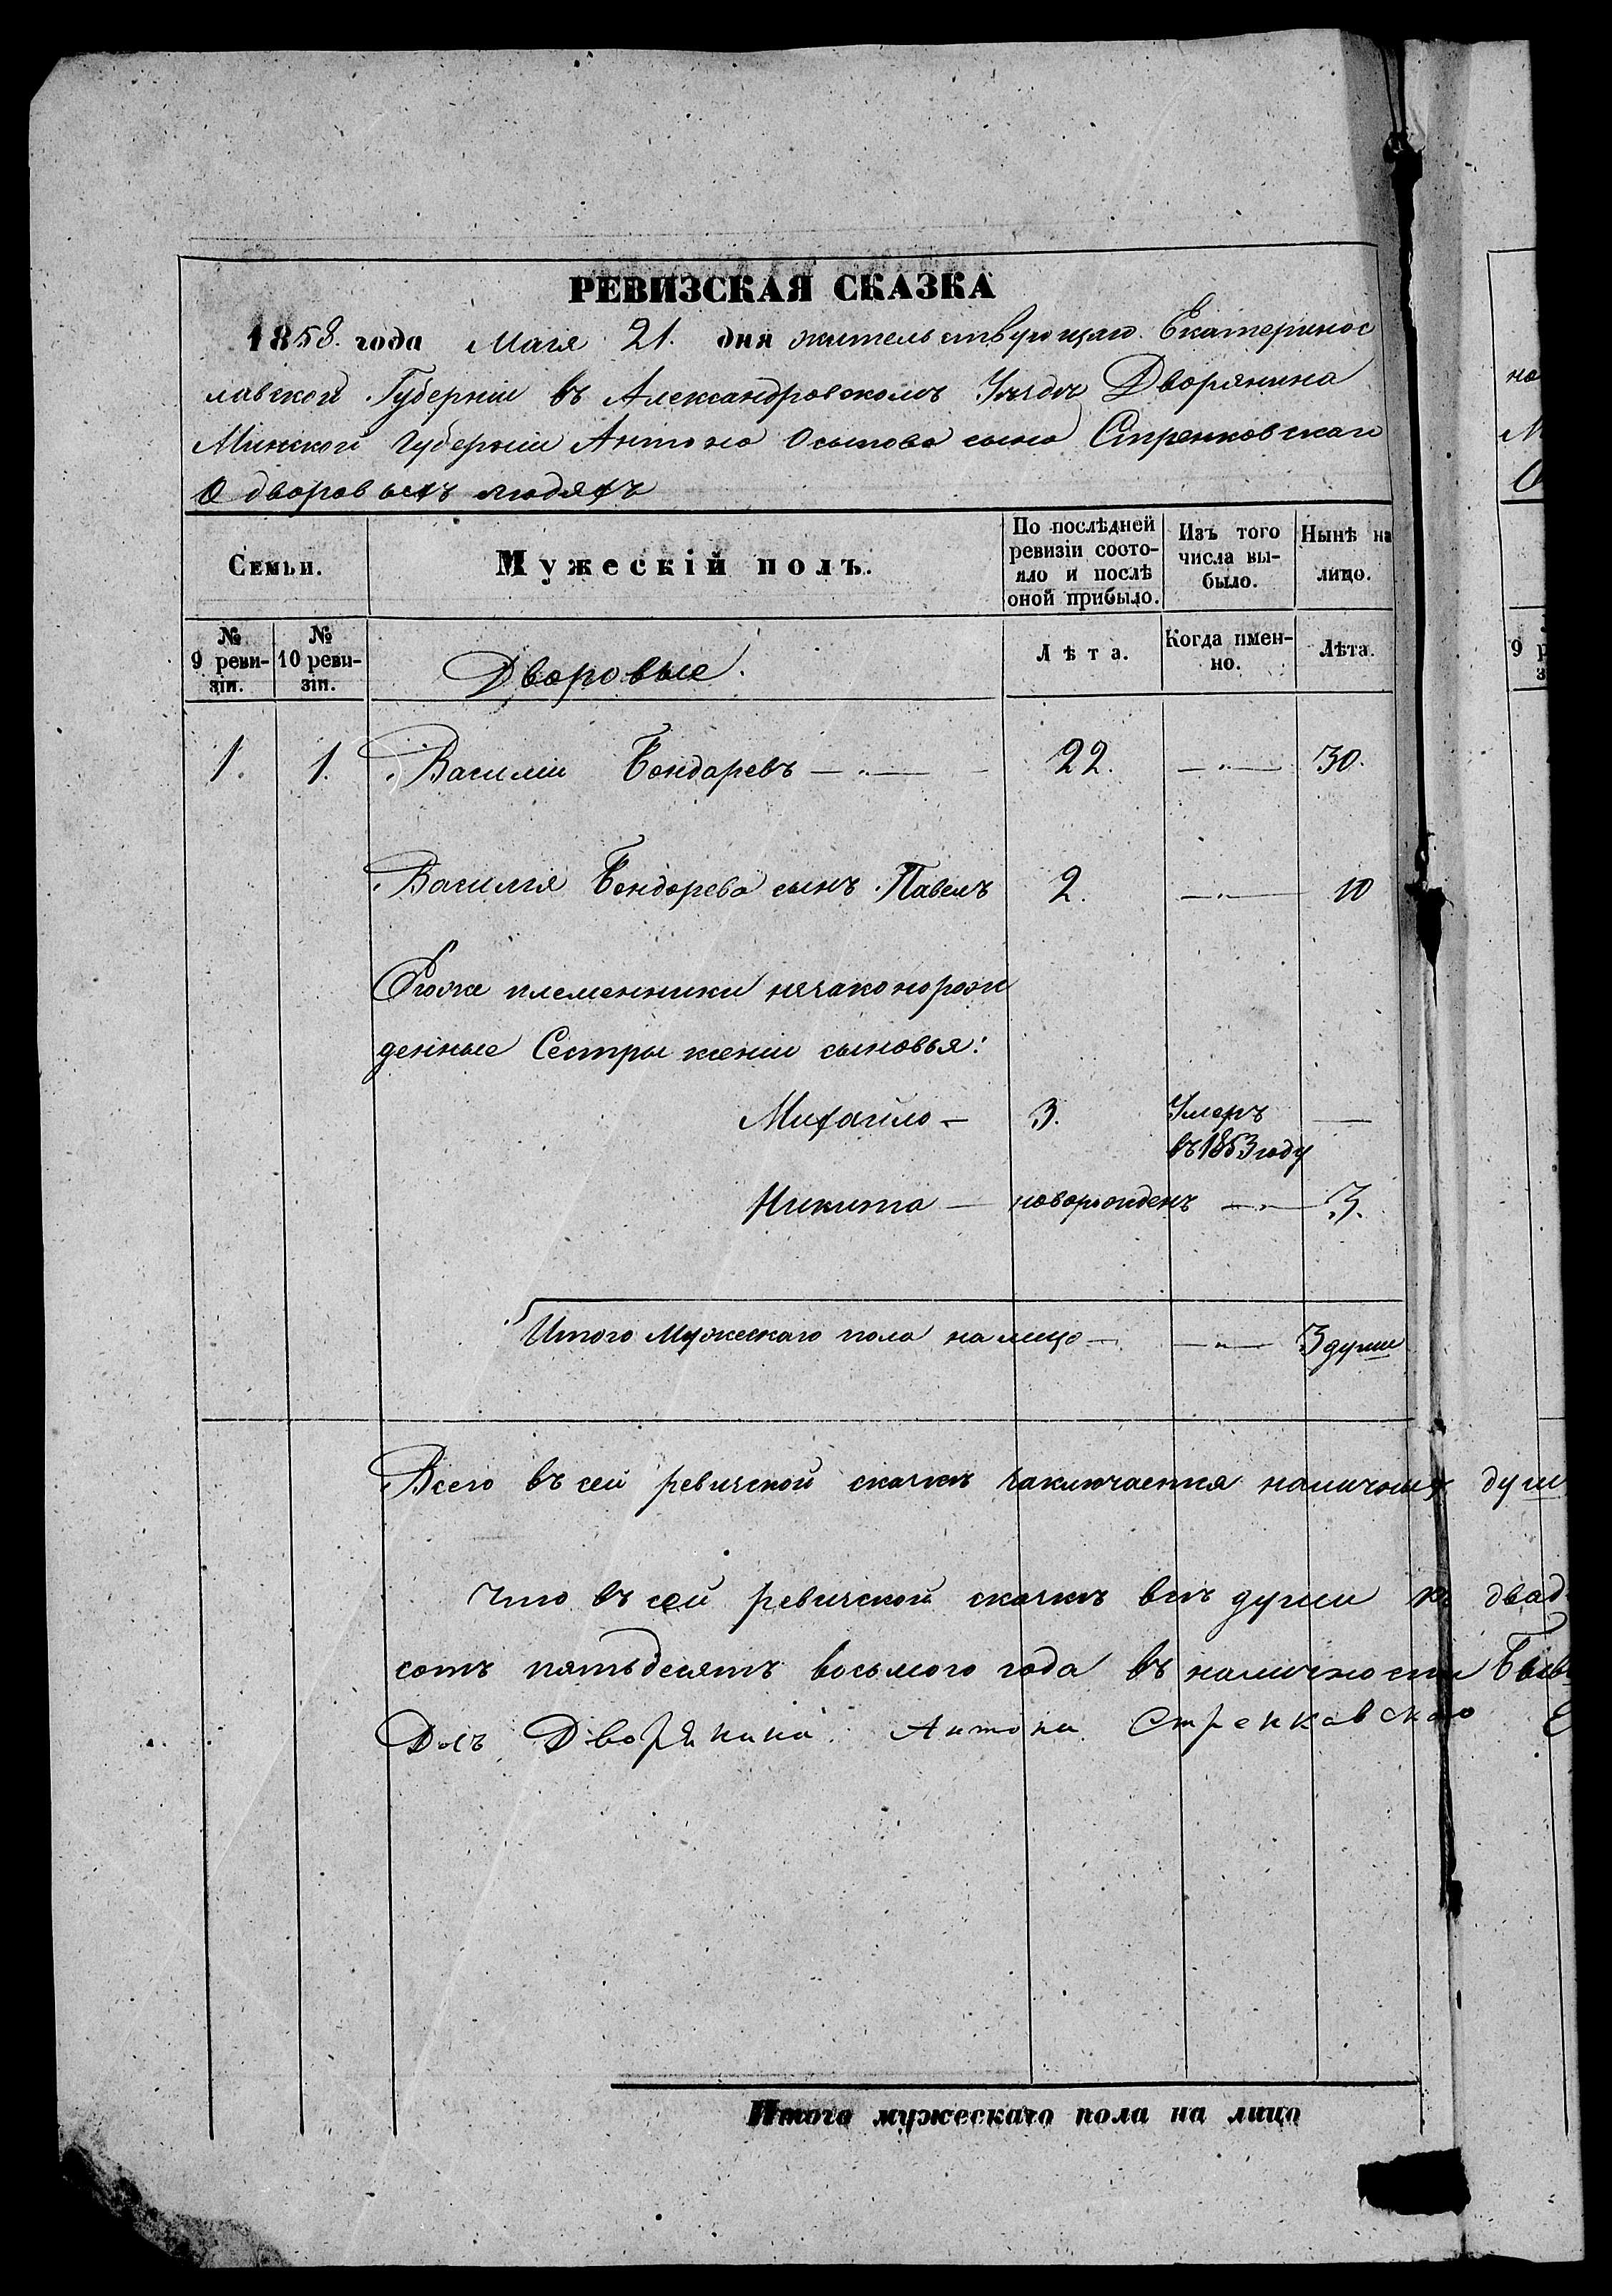 РЕВИЗСКАЯ СКАЗКА
1858. года Мая 21. дня жительствующаго Екатеринос
лавской Губерніи въ Александровскомъ Уѣздѣ Дворянина
Минской Губерніи Антона Осипова сына Стренковскаго
О дворовыхъ людяхъ
Семьи.
Мужескій полъ.
По послѣдней ревизіи состо-
яло и послѣ оной прибыло.
Изъ того числа вы-
было.
Нынѣ на лицо.
№ 9 реви-
зіи.
№ 10 реви-
зіи.
Дворовые.
Лѣта.
Когда имен-
но.
Лѣта.
1. 1. Василій Бондаревъ — „ — 22. — „ — 30.
Василія Бондарева сынъ Павелъ 2. — „ — 10
Его же племенники незаконорож
денные Сестры сыновья:
Михайло — 3. Умеръ —
въ 1853 году
Никита — новорожденъ — „ — 3.
Итого Мужескаго пола на лицо — — „ — 3 души
Всего въ сей ревизской сказкѣ заключается наличныхъ душ
Что въ сей ревизской сказкѣ всѣ души къ двад
сотъ пятьдесятъ восьмого года въ наличности Бывш
Дворянина Антона Стренковскаго
Итого мужескаго пола на лицо
9 р